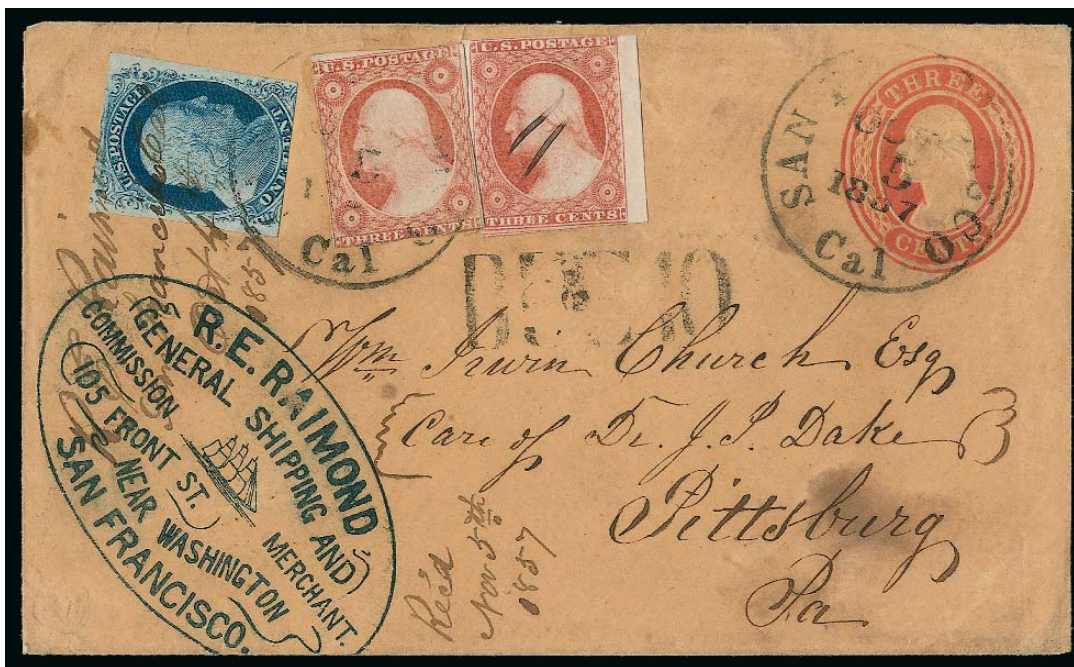 U.S. POSTAGE
ONE CENT
U.S. POSTAGE
THREE CENTS
U.S. POSTAGE
THREE CENTS
THREE
CENTS
SAN
5
1857
Cal
Cal
DUE 10
R. E. RAIMOND
GENERAL SHIPPING AND
COMMISSION MERCHANT.
105 FRONT ST.
NEAR WASHINGTON
SAN FRANCISCO.
Wm Irwin Church Esq
Care of Dr. J. P. Dake
Pittsburg
Pa
Rec'd
Nov 5th
1857